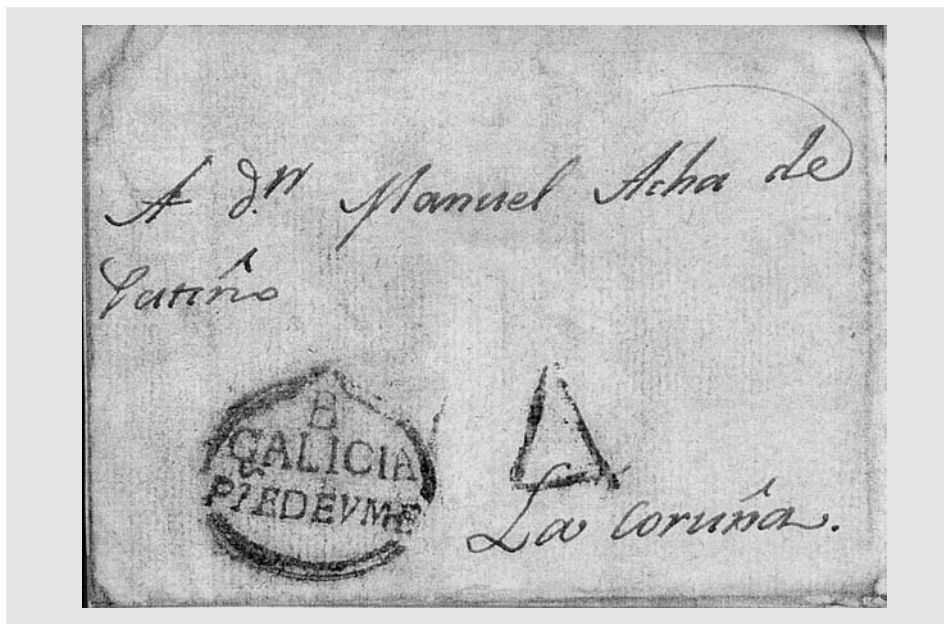 A d.n Manuel Acha de
Patiño
B
GALICIA
PTEDEVME
La Coruña.